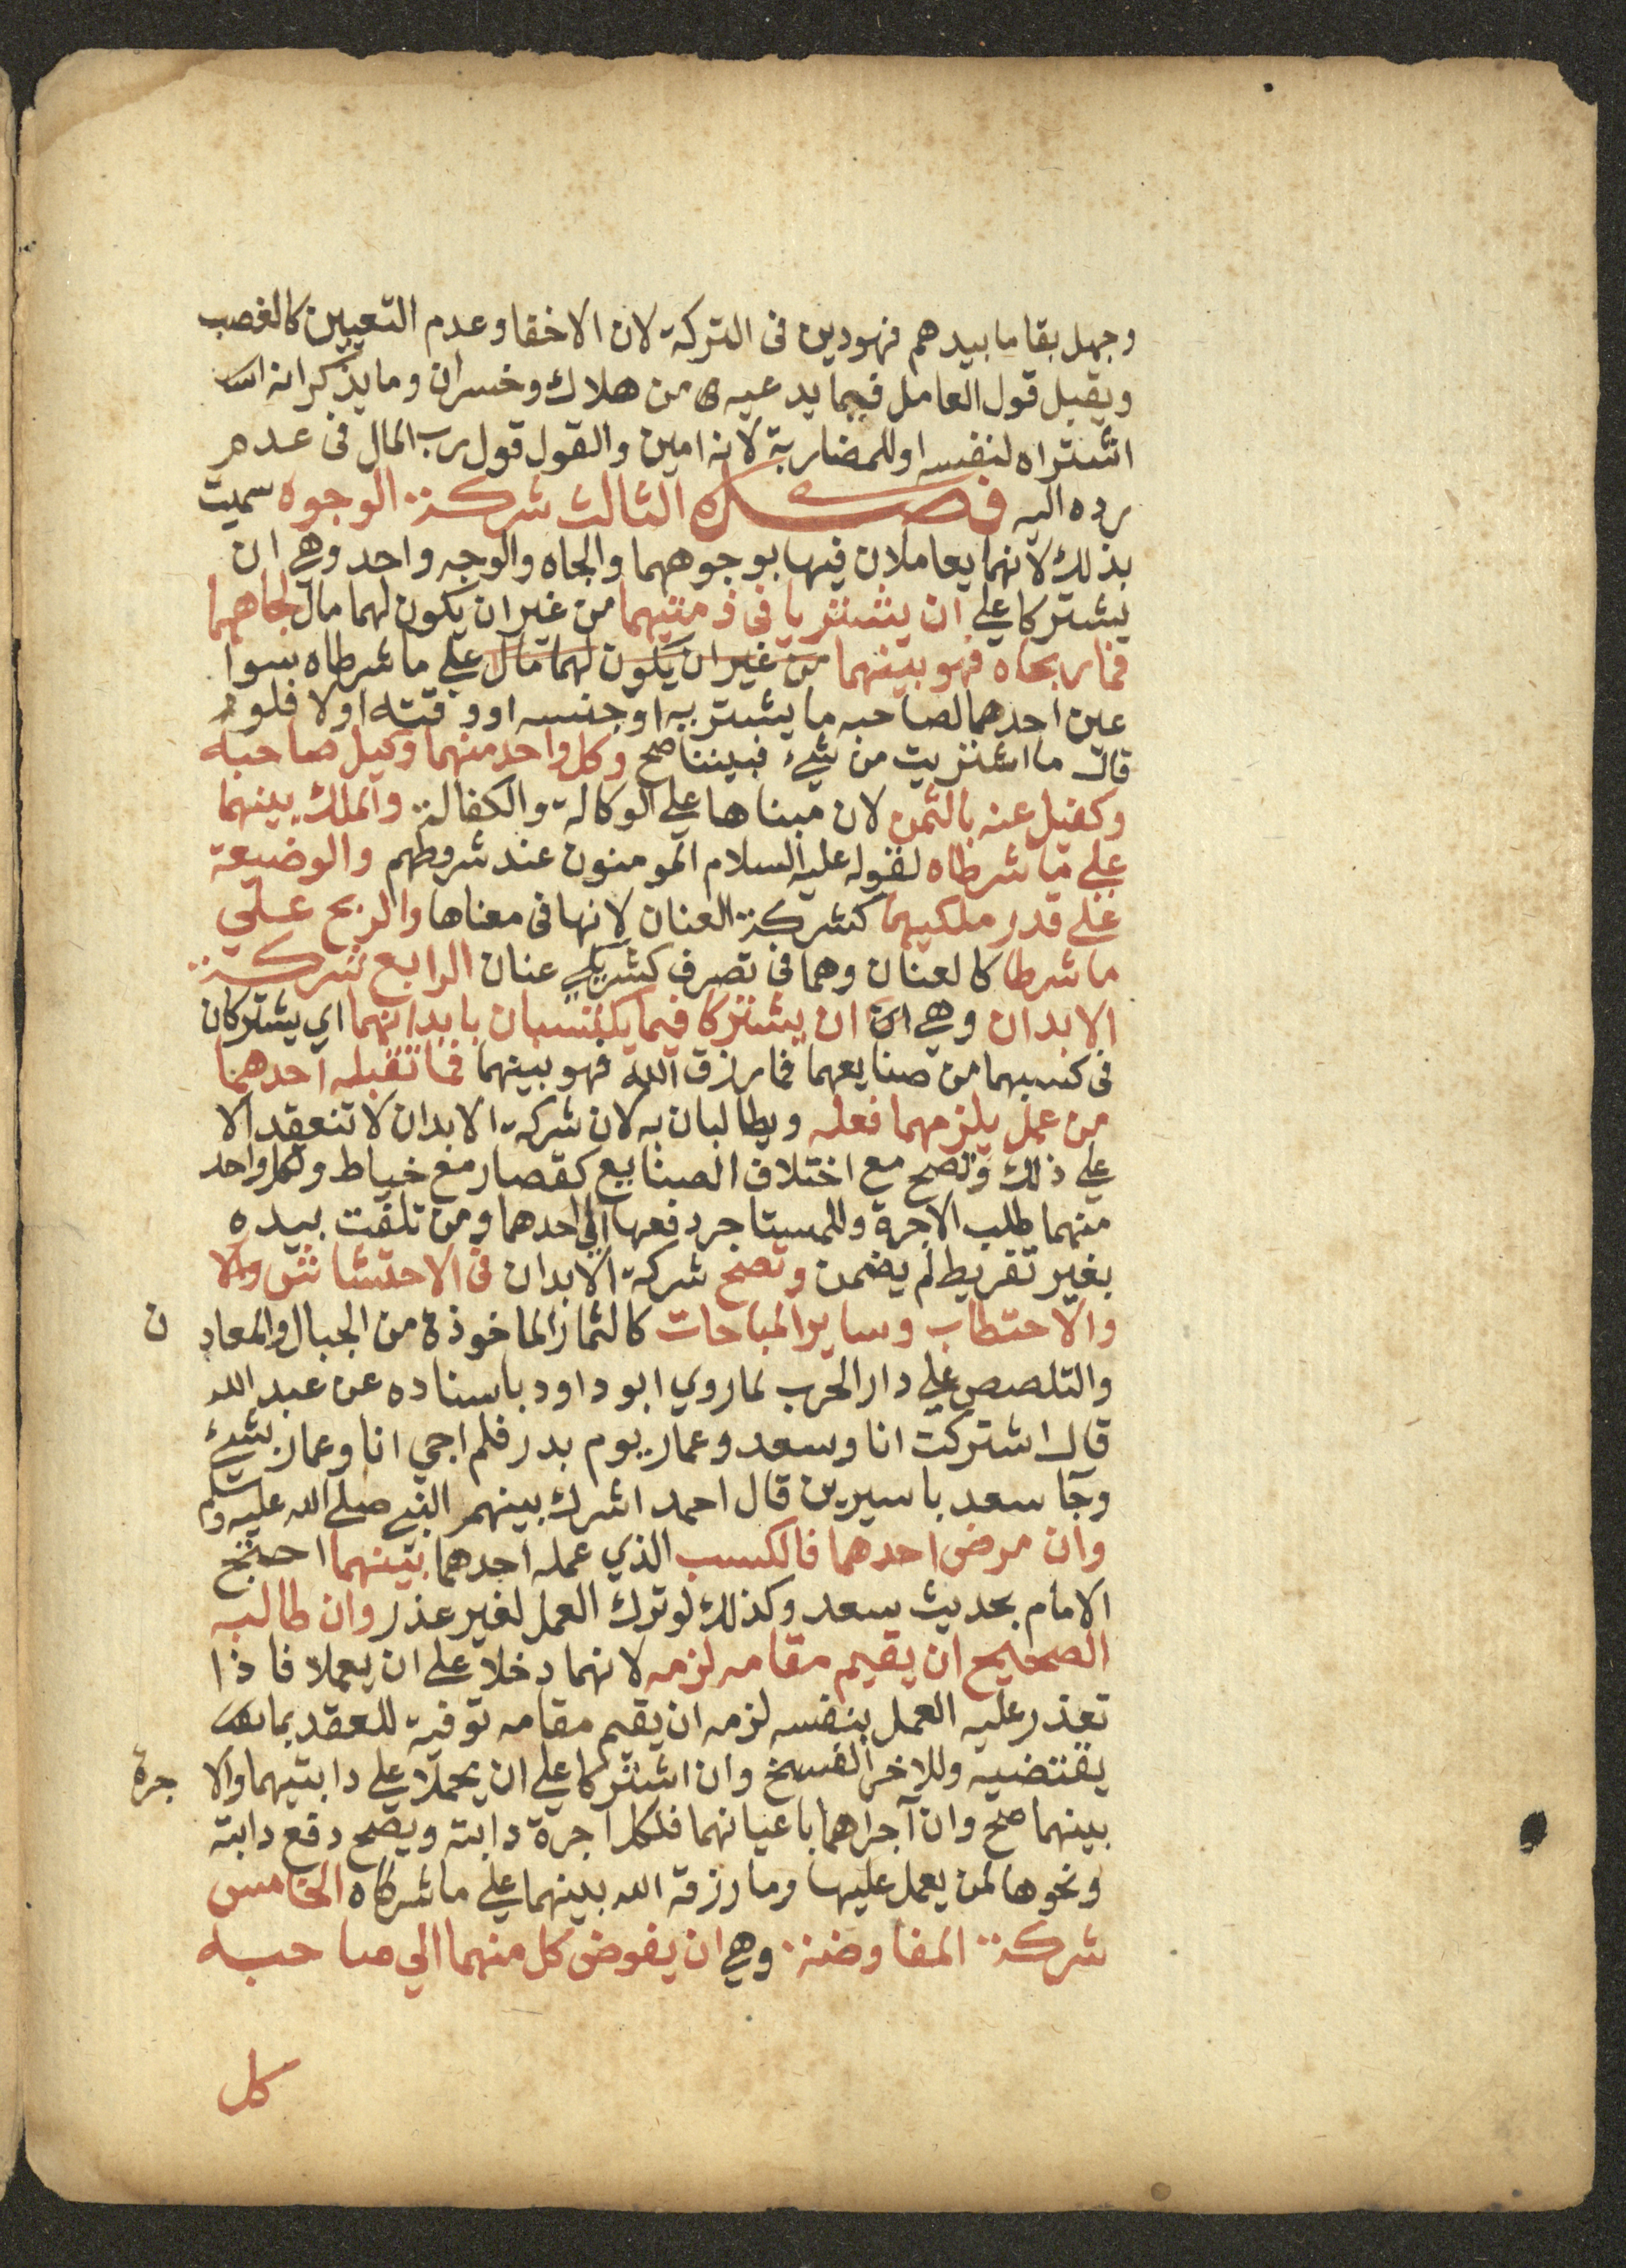 وجهل بقا ما بيدهم فهو دين فى التركة لان الاخفا وعدم التعيين كالغصب
ويقبل قول العامل فيما يدعيه من هلاك وخسران وما يذكر انه
اشتراه لنفسه او للمضاربة لانه امين والقول قول رب المال فى عدم
رده اليه فصل الثالث شركة الوجوه سميت
بذلك لانهما يعاملان فيها بوجوههما والجاه والوجه واحد وهي ان
يشتركا علي ان يشتريا فى ذمتيهما من غير ان يكون لهما مال بجاههما
فما ربحاه فهو بينهما من غير ان يكون لهما مال علي ما شرطاه سوا
عين احدهما لصاحبه ما يشتريه او جنسه او وقته او لا فلو
قال ما اشتريت من شيء فبيننا صح وكل واحد منهما وكيل صاحبه
وكفيل عنه بالثمن لان مبناها علي الوكالة والكفالة والملك بينهما
علي ما شرطاه لقوله عليه السلام المومنون عند شروطهم والوضيعة
علي قدر ملكيهما كشركة العنان لانها فى معناها والربح علي
ما شرطا كالعنان وهما فى تصرف كشريكي عنان الرابع شركة
الابدان وهي ان ان يشتركا فيما يكتسبان بابدانهما اي يشتركان
فى كسبهما من صنايعهما فما رزق الله فهو بينهما فما تقبله احدهما
من عمل يلزمهما فعله ويطالبان به لان شركة الابدان لا تنعقد الا
علي ذلك وتصح مع اختلاف الصنايع كقصار مع خياط ولكل واحد
منهما طلب الاجرة وللمستاجر دفعها الي احدهما ومن تلفت بيده
بغير تفريط لم يضمن وتصح شركة الابدان فى الاحتشاش ولا
والاحتطاب وساير المباحات كالثمار الماخوذة من الجبال والمعادن
والتلصص علي دار الحرب لما روي ابو داود باسناده عن عبد الله
قال اشتركت انا وسعد وعمار يوم بدر فلم اجي انا وعمار بشيء
وجا سعد باسيرين قال احمد اشرك بينهم النبي صلي الله عليه وسلم
وان مرض احدهما فالكسب الذي عمله احدهما بينهما احتج
الامام بحديث سعد وكذلك لو ترك العمل لغير عذر وان طالبه
الصحيح ان يقيم مقامه لزمه لانهما دخلا على ان يعملا فاذا
تعذر عليه العمل بنفسه لزمه ان يقيم مقامه توفية للعقد بما
يقتضيه وللاخر الفسخ وان اشتركا علي ان يحملا علي دابتيهما والاجرة
بينهما صح وان آجراهما باعيانهما فلكل اجرة دابته ويصح دفع دابته
ونحوها لمن يعمل عليها وما رزقه الله بينهما علي ما شركاه الخامس
شركة المفاوضة وهي ان يفوض كل منهما الي صاحبه
كل